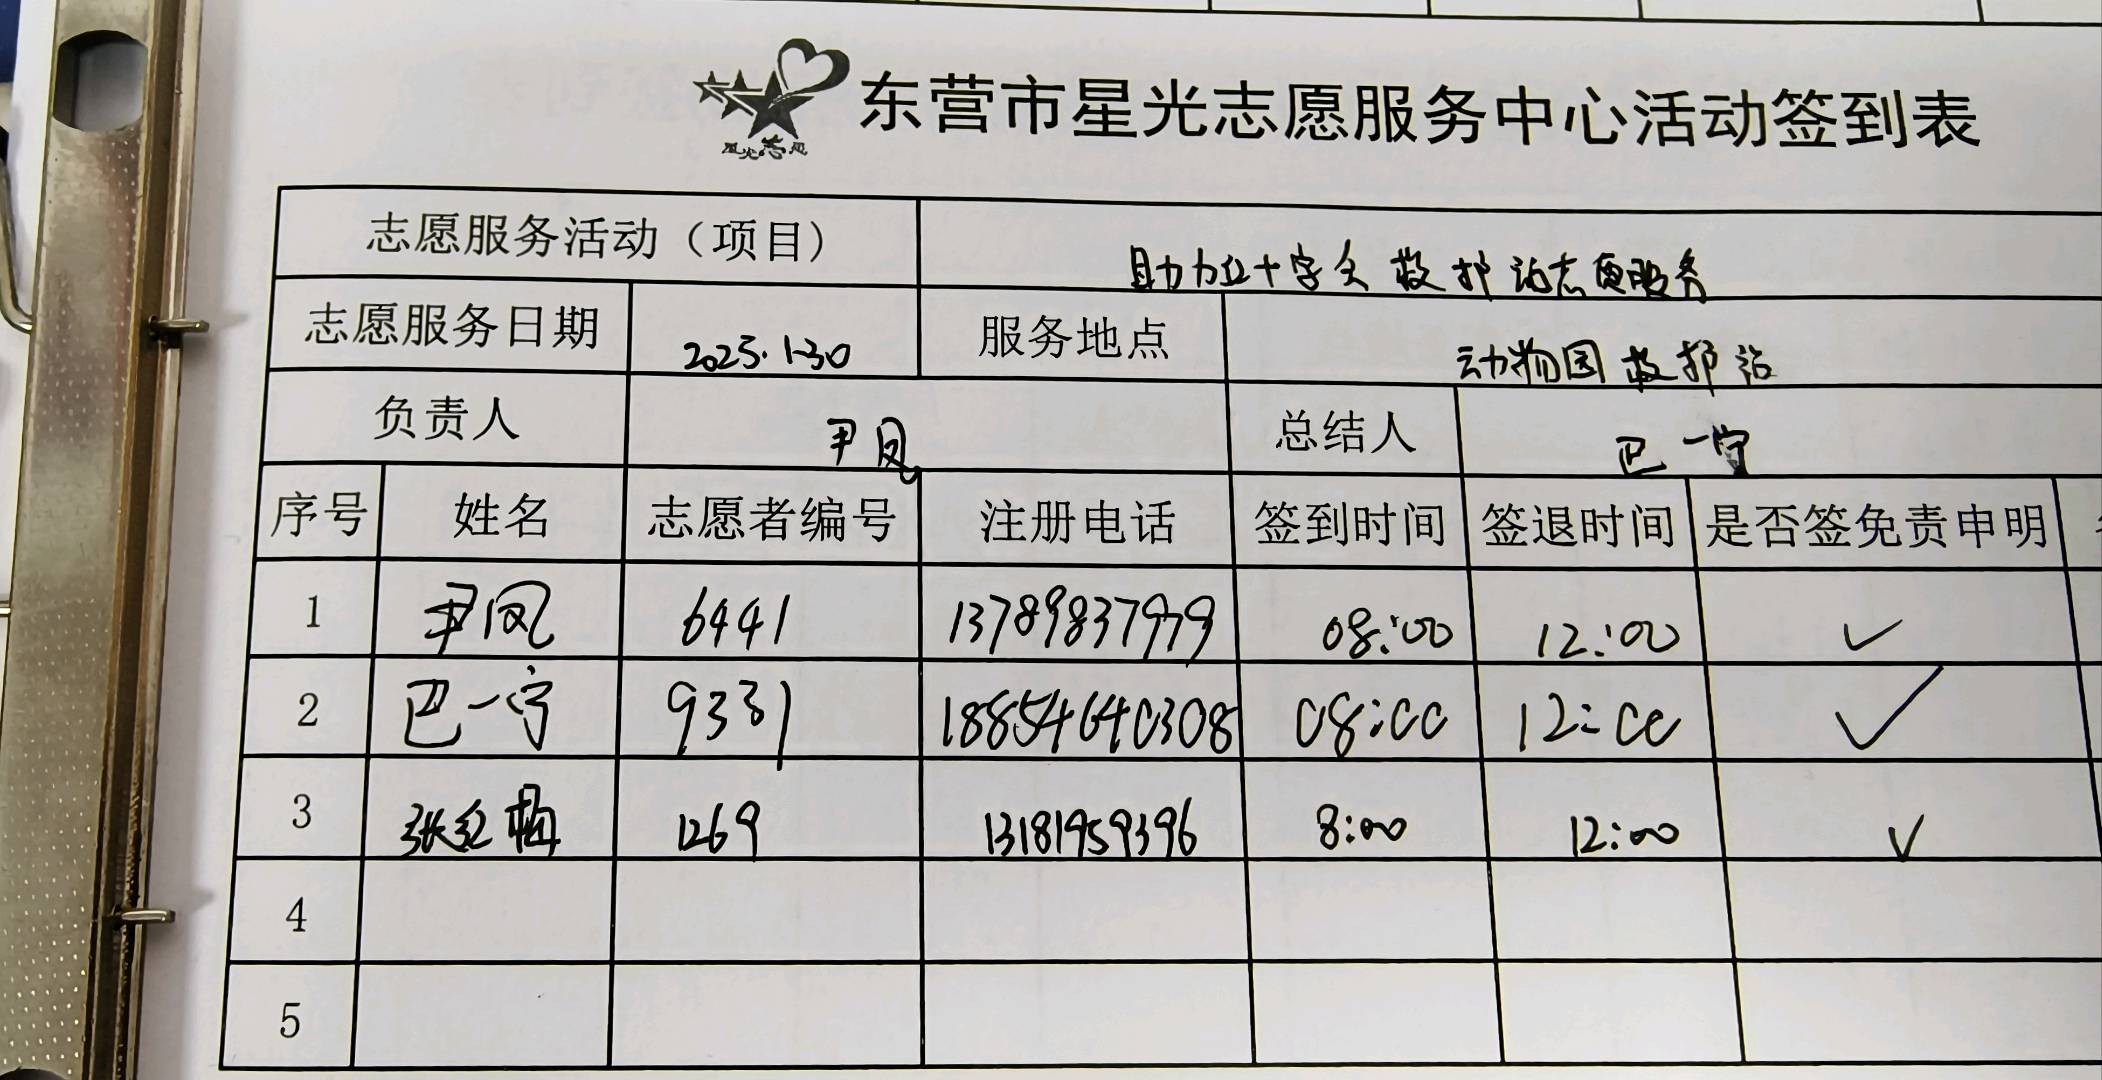 东营市星光志愿服务中心活动签到表
星光志愿
志愿服务活动（项目） 助力红十字会救护站志愿服务
志愿服务日期 2025.1.30 服务地点 动物园救护站
负责人 尹凤 总结人 巴一宁
序号 姓名 志愿者编号 注册电话 签到时间 签退时间 是否签免责申明
1 尹凤 6441 13789837979 08:00 12:00 ✓
2 巴一宁 9331 18854640308 08:00 12:00 ✓
3 张红梅 1269 13181959396 8:00 12:00 ✓
4
5